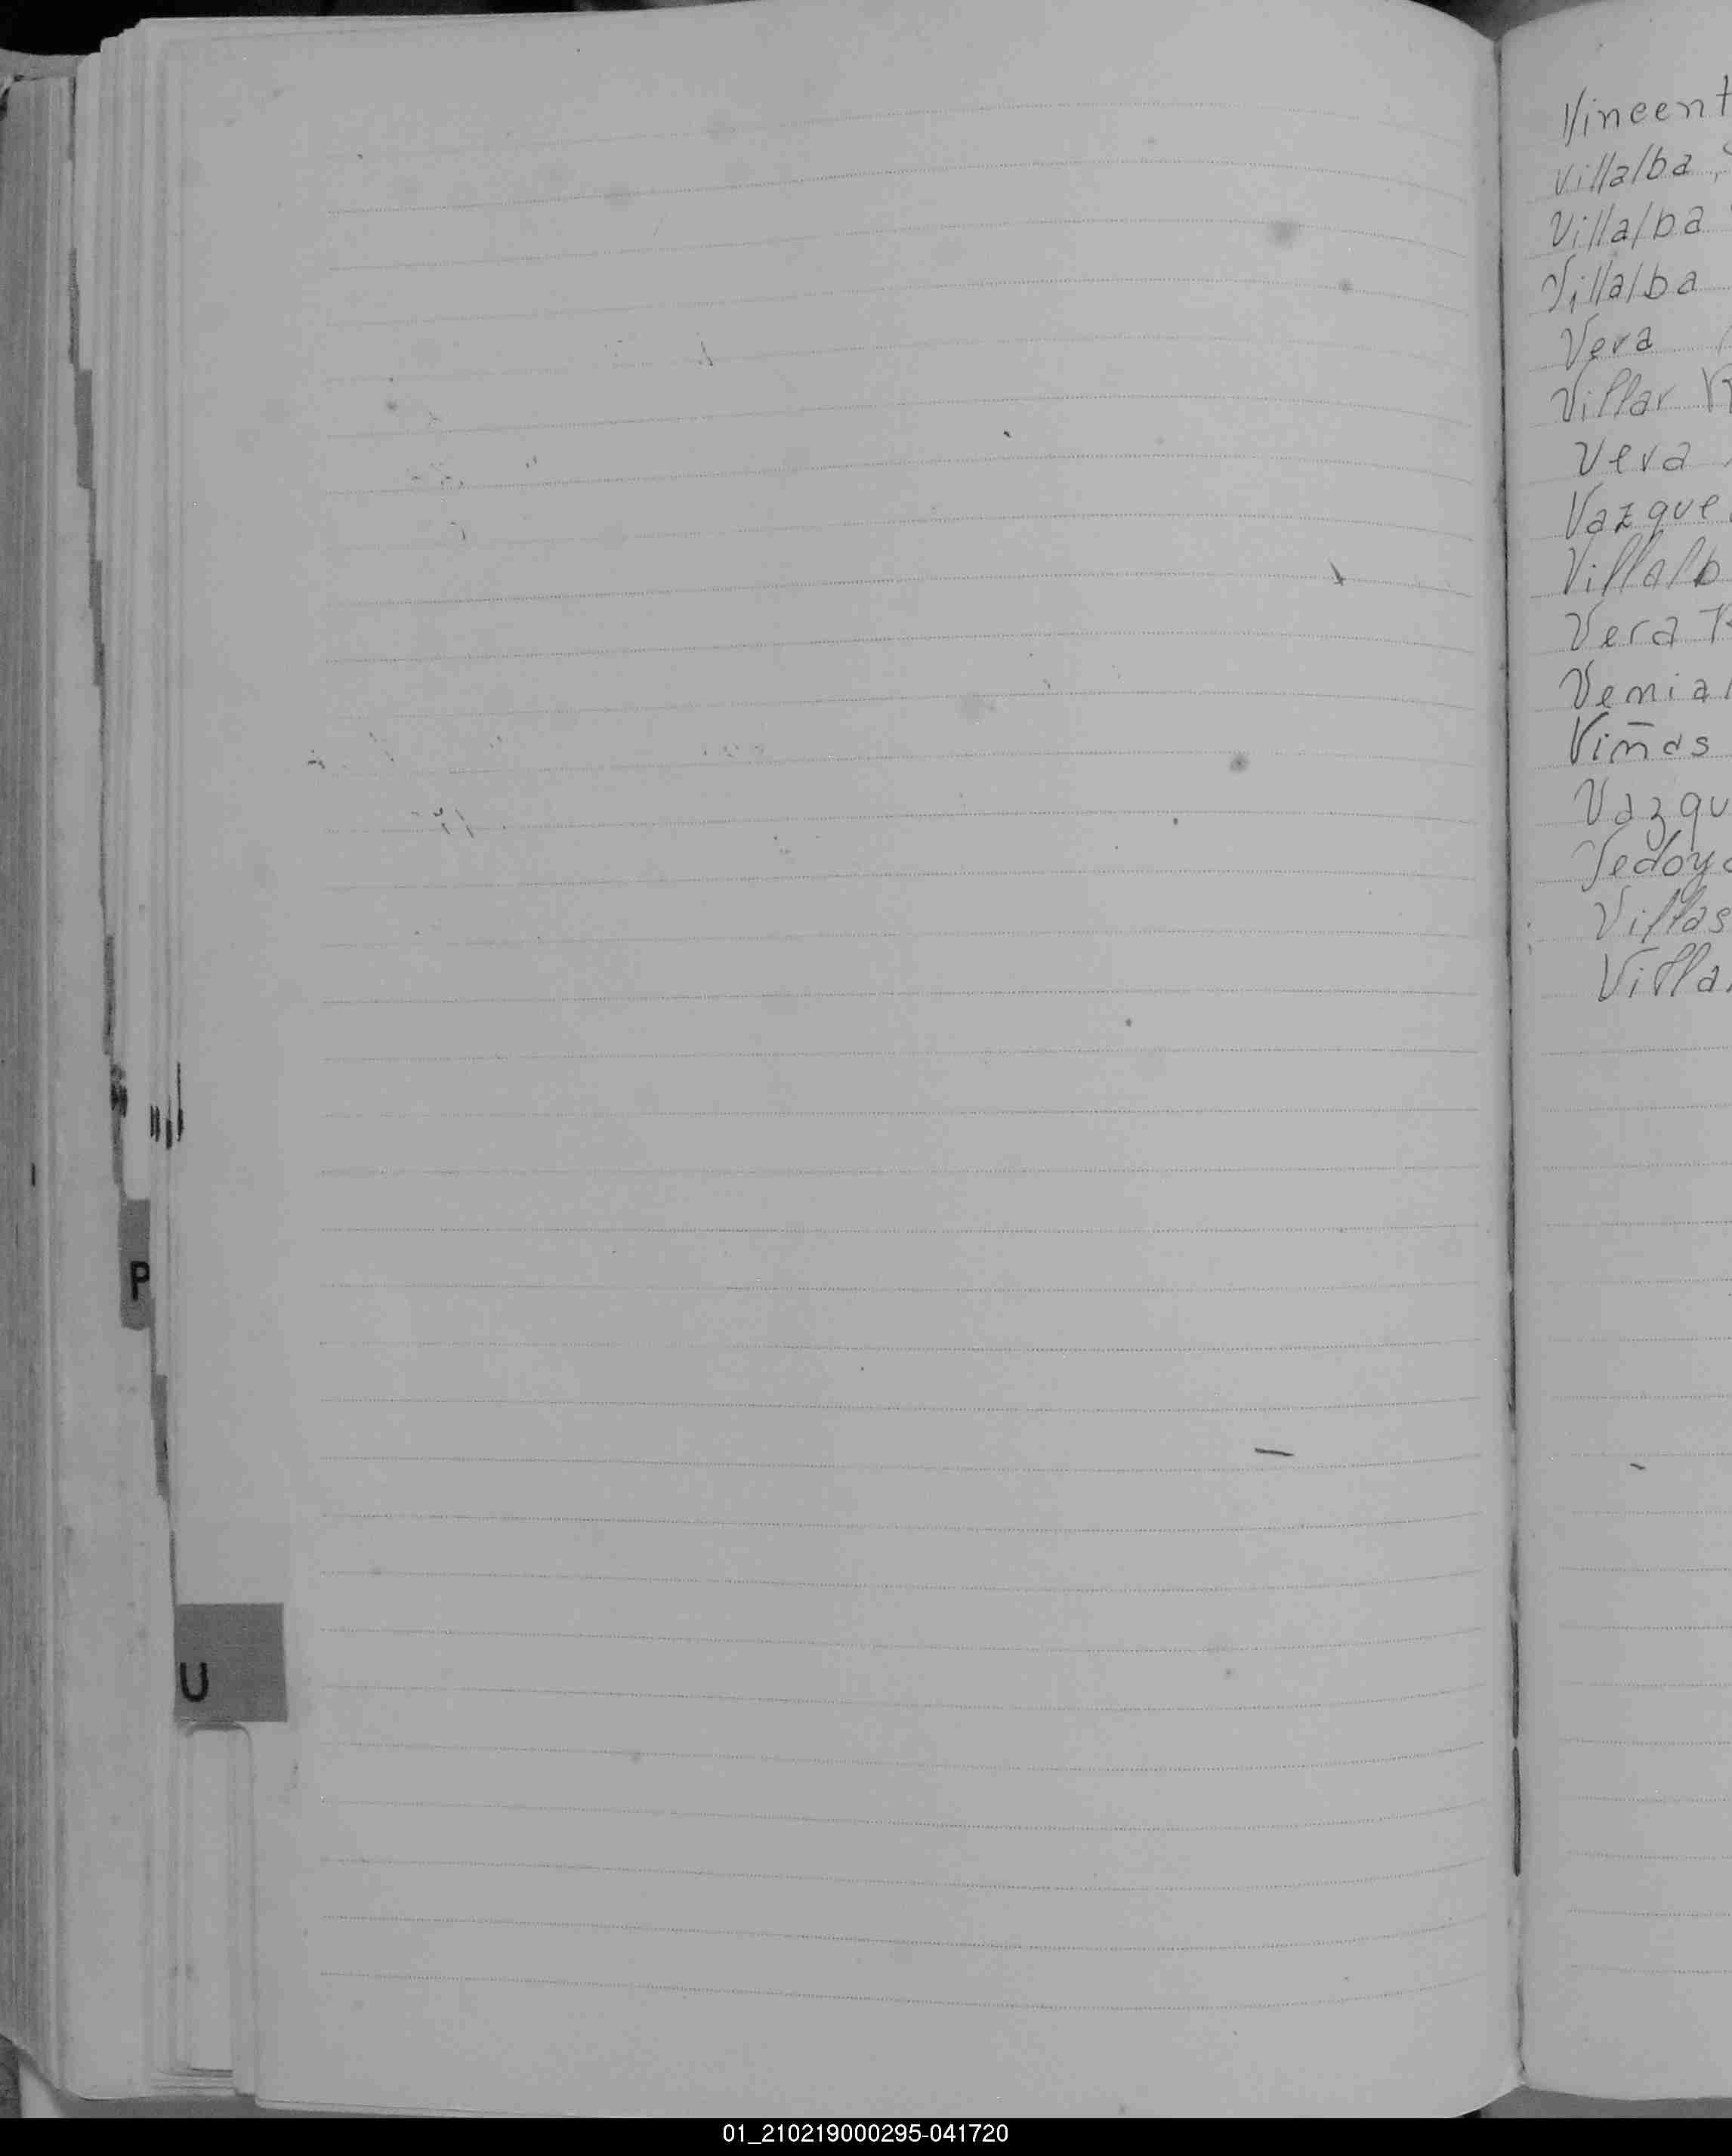 Vincent
Villalba,
Villalba
Villalba
Vera
Villar
Vera
Vazque
Villalb
Vera
Venia
Viñas
Vazqu
Vedoya
Villas
Villa
P
U
01_210219000295-041720